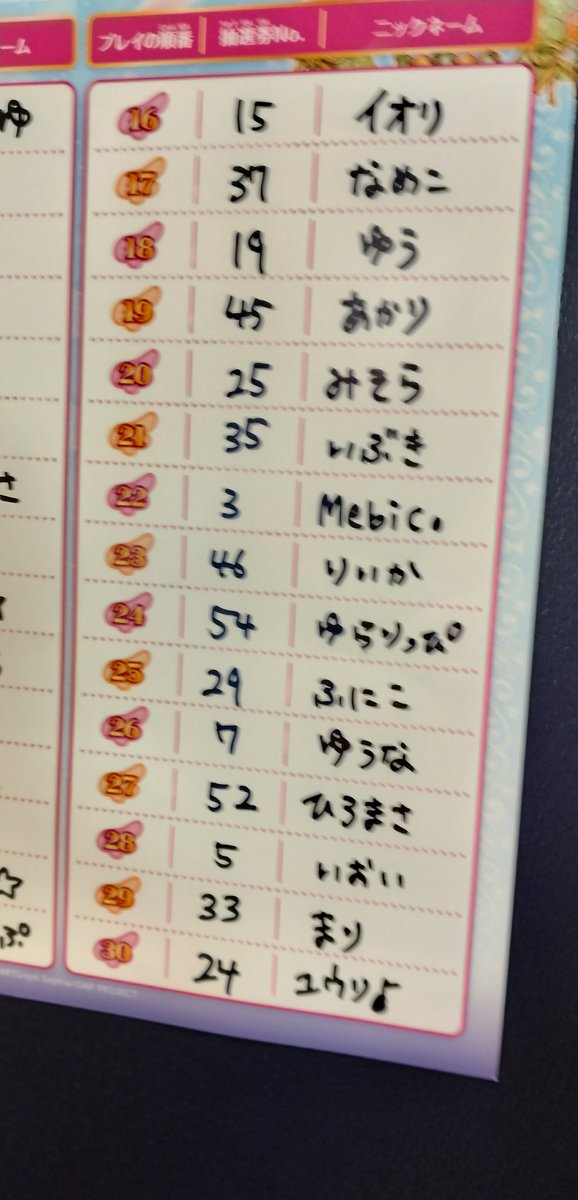 ーム
プレイの順番 抽選券No. ニックネーム
16 15 イオリ
17 37 なめこ
18 19 ゆう
19 45 あかり
20 25 みそら
21 35 いぶき
22 3 Mebic.
23 46 りいか
24 54 ゆらりっぴ°
25 29 ふにこ
26 7 ゆうな
27 52 ひろまさ
28 5 いおい
29 33 まり
30 24 ユウリ♪
ゆ
さ
☆